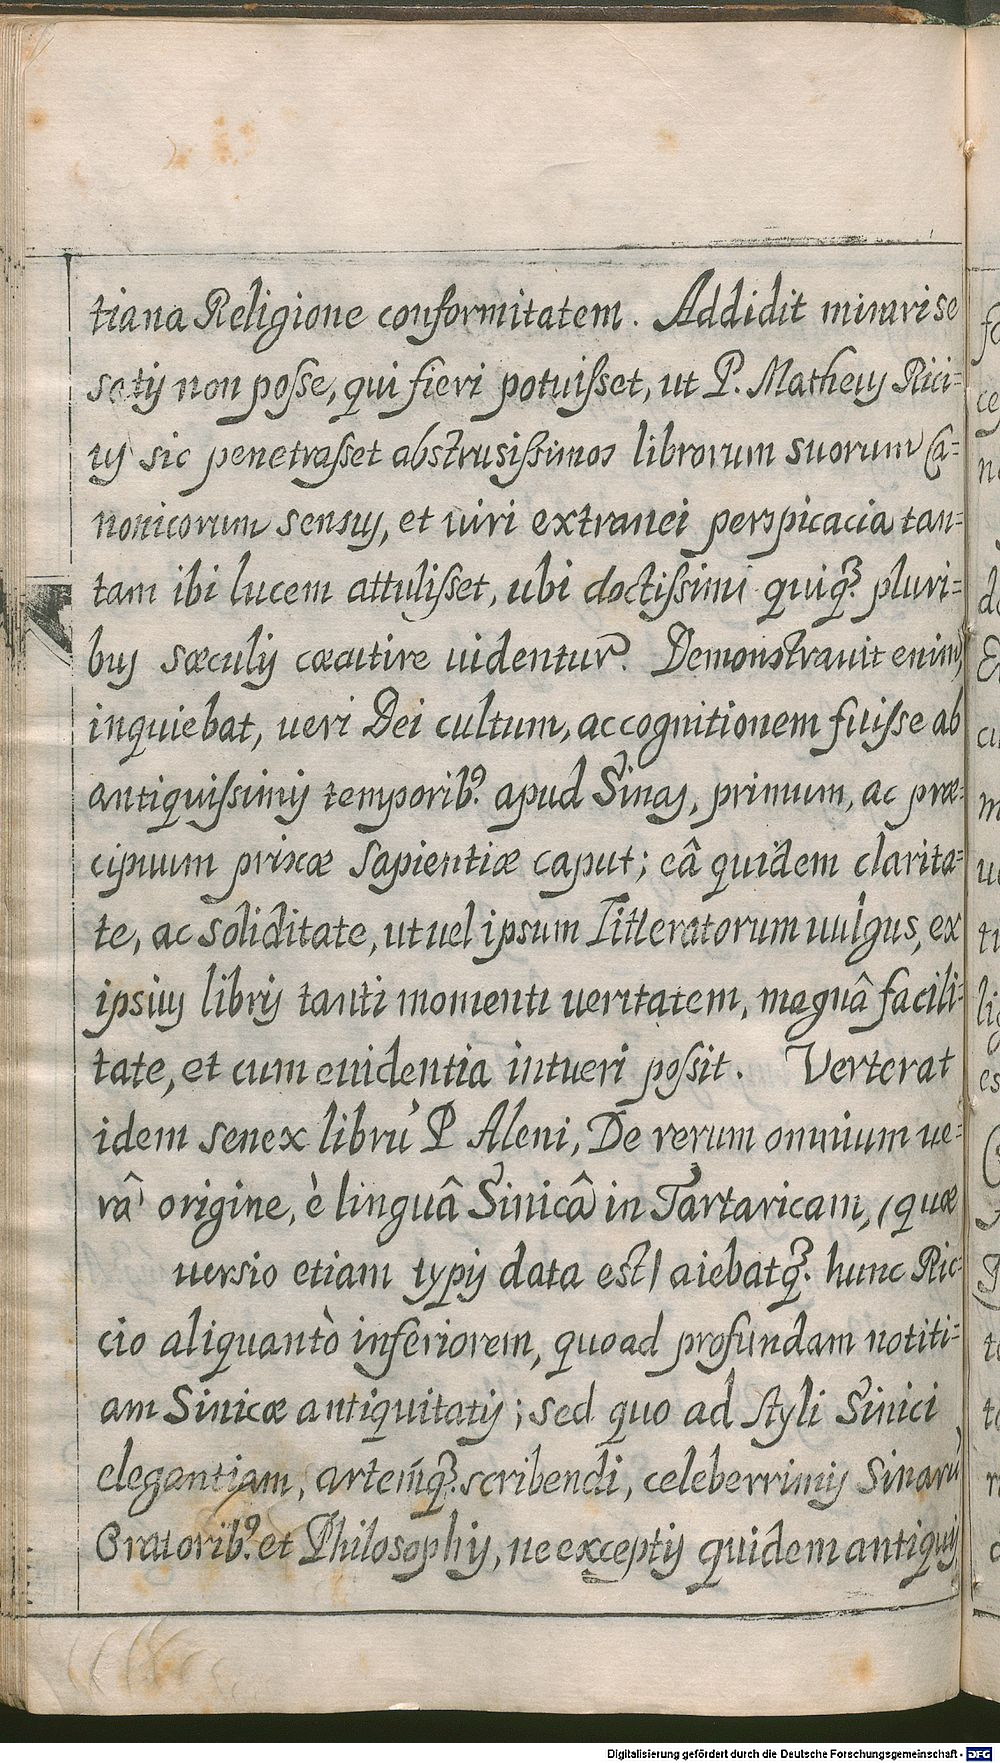 tiana Religione conformitatem. Addidit mirari se
satis non posse, qui fieri potuisset, ut P. Matheus Rici=
us sic penetrasset abstrusissimos librorum suorum Ca=
nonicorum sensus, et uiri extranei perspicacia tan=
tam ibi lucem attulisset, ubi doctissimi quiq3. pluri=
bus sæculis cæcutire uidentur. Demonstrauit enim,
inquiebat, ueri Dei cultum, ac cognitionem fuisse ab
antiquissimis temporib9. apud Sinas, primum, ac præ=
cipuum priscæ sapientiæ caput; eâ quidem clarita=
te, ac soliditate, ut uel ipsum Litteratorum uulgus, ex
ipsius libris tanti momenti ueritatem, magnâ facili=
tate, et cum euidentia intueri possit. Verterat
idem senex librũ P Aleni, De rerum omnium ue=
râ origine, è linguâ Sinicâ in Tartaricam, (quæ
uersio etiam typis data est) aiebatq3. hunc Ric=
cio aliquantò inferiorem, quoad profundam notiti=
am Sinicæ antiquitatis; sed quo ad styli Sinici
elegantiam, artemq3. scribendi, celeberrimis Sinarũ
Oratorib9. et Philosophis, ne exceptis quidem antiquis
Digitalisierung gefördert durch die Deutsche Forschungsgemeinschaft - DFG